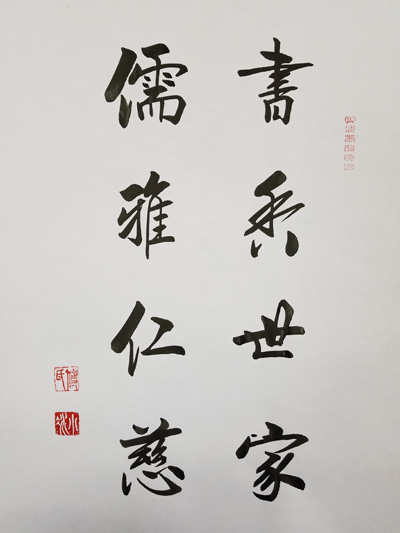 書香世家
儒雅仁慈